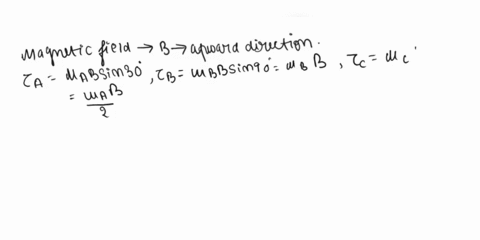 magnetic field → B → apward direction.
τ_A = M_A B sin30°, τ_B = m_B B sin90° = M_B B, τ_C = M_C
= m_A B / 2